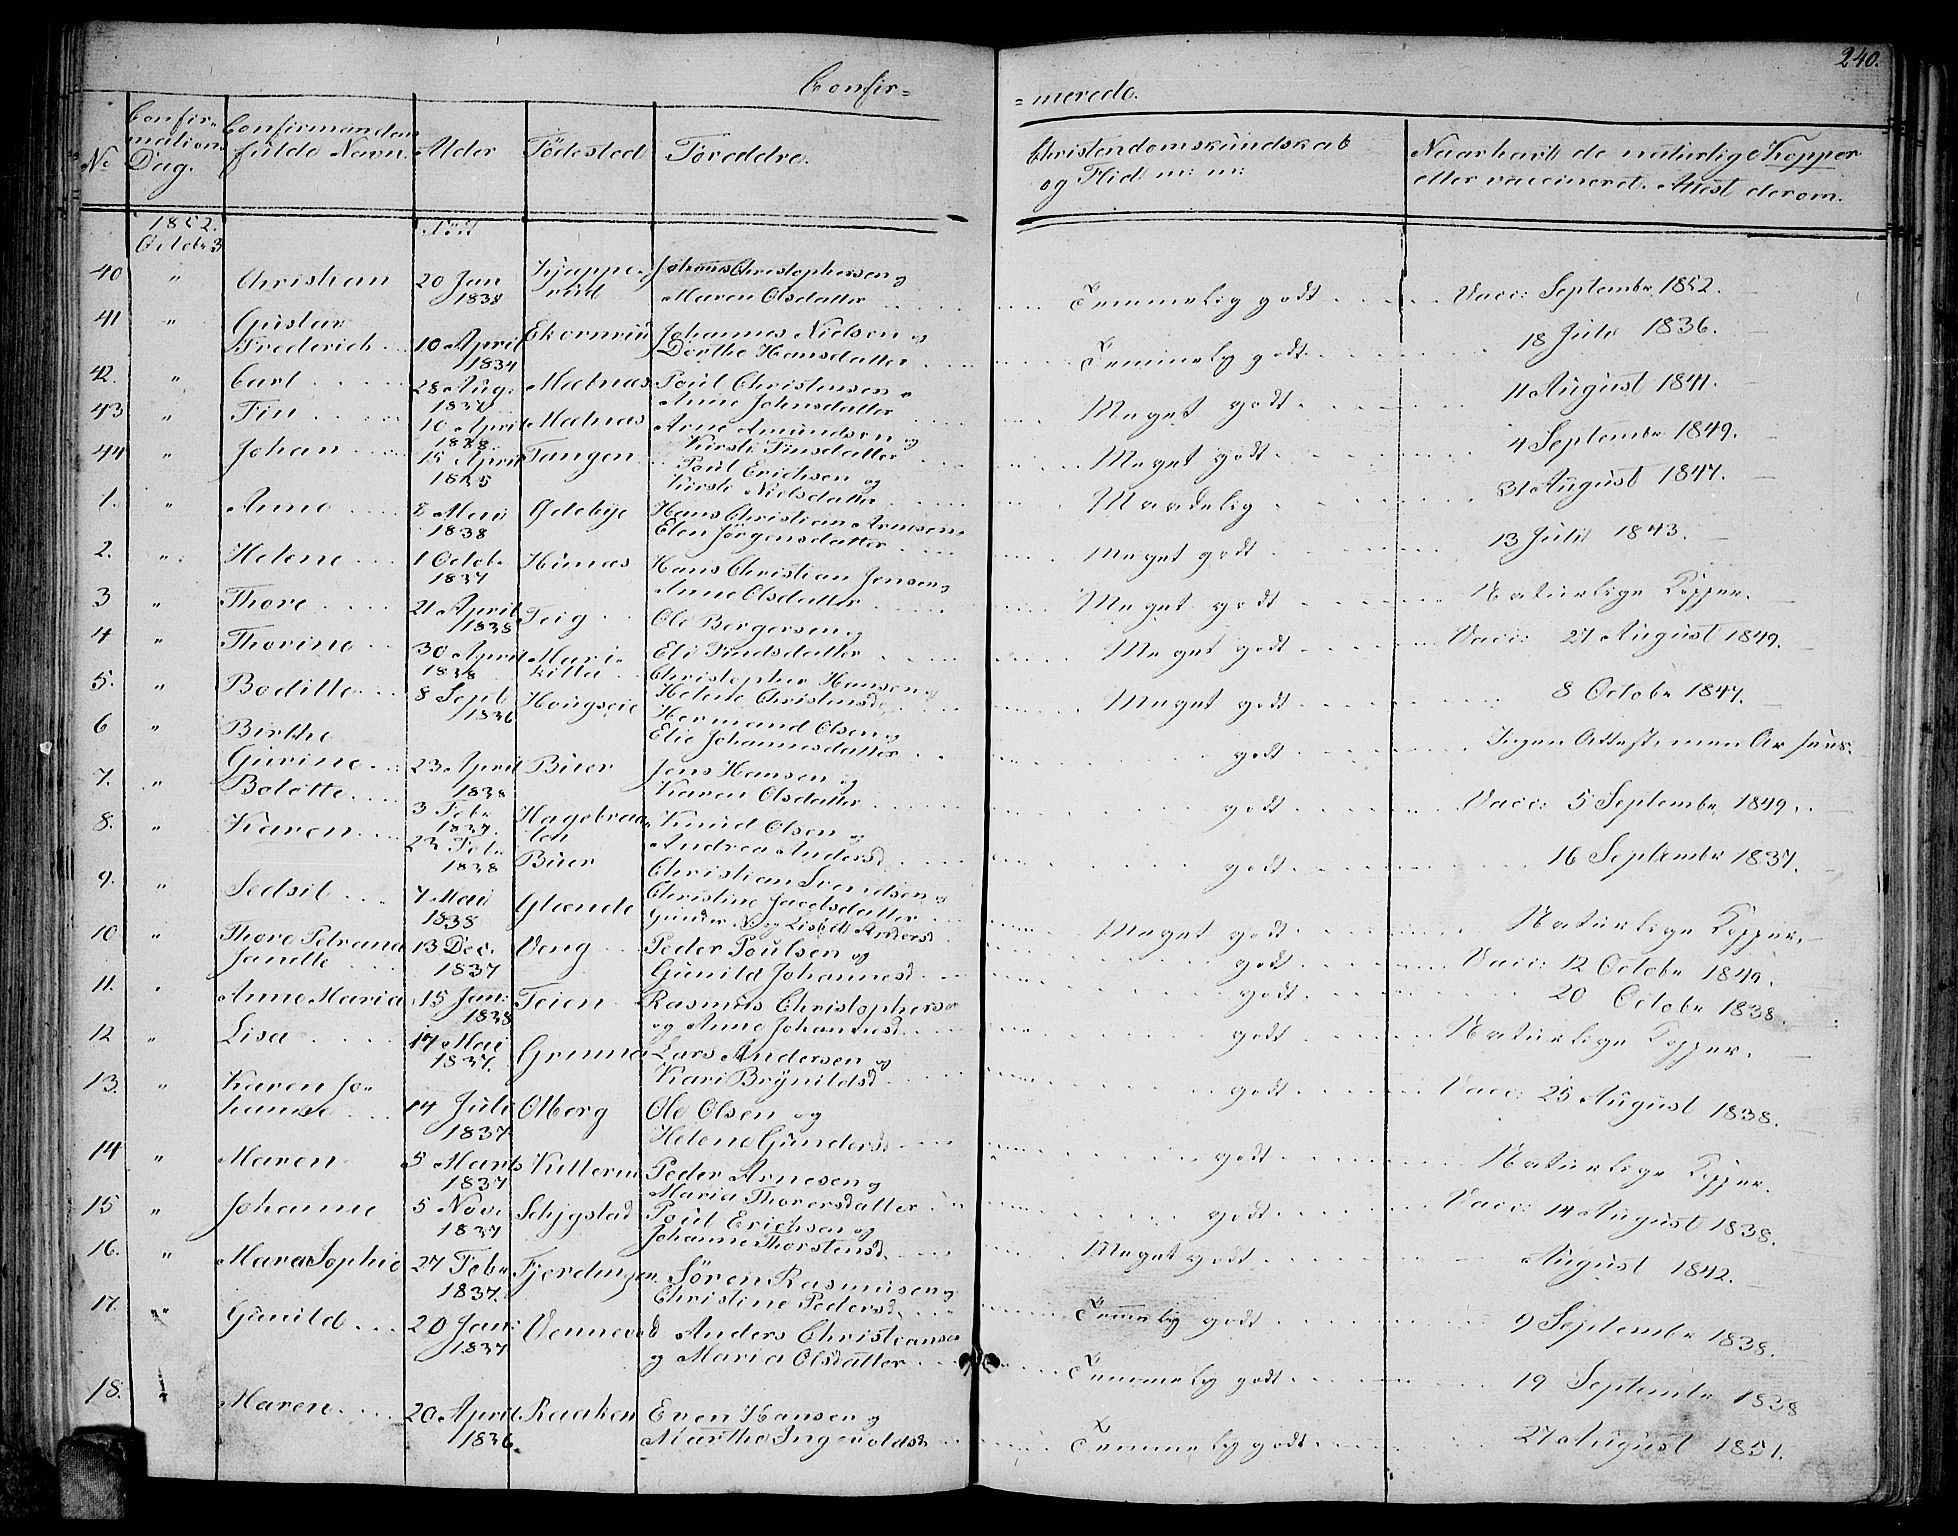 240.
Confir=
=merede.
No
Confir=
mation
Dag.
Confirmandens
fulde Navn.
Alder
Födested
Foreldre.
Christendomskundskab
og Flid m: m:
Naar havt de naturlige Kopper
eller vaccineret. Attest derom.
1852.
Octobr 3
40 " Christian 20 Jan 1838 Johans Christophersen og
Maren Olsdatter Temmelig godt Vacc: Septembr 1852.
41 " Gustav
Frederich 10 April 1834 Ekornrud Johannes Nielsen og
Dorthe Hansdatter Temmelig godt 18 Juli 1836.
42. " Carl 28 Aug. 1837 Mælnæs Poul Christensen og
Anne Johnsdatter Meget godt 11 August 1841.
43 " Fin 10 April 1838 Mælnæs Arne Amundsen og
Kirsti Finsdatter Meget godt 4 Septembr 1849.
44 " Johan 15 April 1835 Tangen Poul Erichsen og
Kirsti Nielsdatter Maadelig 31 August 1847.
1. " Anne 8 Mai 1838 Hans Christian Arnesen
Elen Jörgensdatter Meget godt 13 Juli 1843.
2. " Helene 1 Octobr 1837 Hans Christian Jensen og
Anne Olsdatter Meget godt Naturlige Kopper.
3 " Thore 21 April 1838 Teig Ole Bergersen og
Eli Findsdatter Meget godt Vacc: 27 August 1849.
4 " Thorine 30 April 1838 Christopher Hansen og
Helene Christensd. Meget godt 8 Octobr 1847.
5. " Bodille 8 Sept 1836 Hougseie Hermand Olsen og
Elie Johannesdatter godt Ingen Attest, men Ar sees.
6 " Birthe
Gurine 23 April 1838 Buer Jens Hansen og
Karen Olsdatter godt Vacc: 5 Septembr 1849.
7. " Bolette 3 Febr 1837. Knud Olsen og
Andrea Andersd godt 16 Septembr 1837.
8. " Karen 23 Feb. 1838 Buer Christian Svendsen og
Christine Jacobsdatter Meget godt Naturlige Kopper.
9. " Sedsil 7 Mai 1838 Glænde Gunder N og Lisbet Andersd godt Vacc: 12 Octobr 1849.
10 " Thore Petrana
Janette 13 Dec. 1837 Veng Peder Poulsen og
Gunild Johannesd. godt 20 Octobr 1838.
11. " Anne Maria 15 Jan: 1838 Teien Rasmus Christophersen
og Anne Johannesd. godt Naturlige Kopper.
12 " Lisa 17 Mai 1837. Grimna Lars Andersen og
Kari Brynildsd godt Vacc: 25 August 1838.
13. " Karen Jo=
hanne 14 Juli 1837 Olberg Ole Olsen og
Helene Gundersd. godt Naturlige Kopper.
14 " Maren 5 Marts 1837 Kullerud Peder Arnesen og
Maria Thorersdatter godt Vacc: 14 August 1838.
15 " Johanne 5 Nov. 1837 Poul Erichsen og
Johanne Thorstensd. Meget godt August 1842.
16. " Mara Sophie 27 Febr 1837. Fjerdingen Sören Rasmussen og
Christine Pedersd. Temmelig godt 9 Septembr 1838.
17. " Gunild 20 Jan: 1837 Vennevold Anders Christiansen
og Maria Olsdatter Temmelig godt 19 Septembr 1838
18. Maren 20 April 1836 Raaken Even Hansen og
Marthe Ingevoldsd. Temmelig godt 27 August 1851.